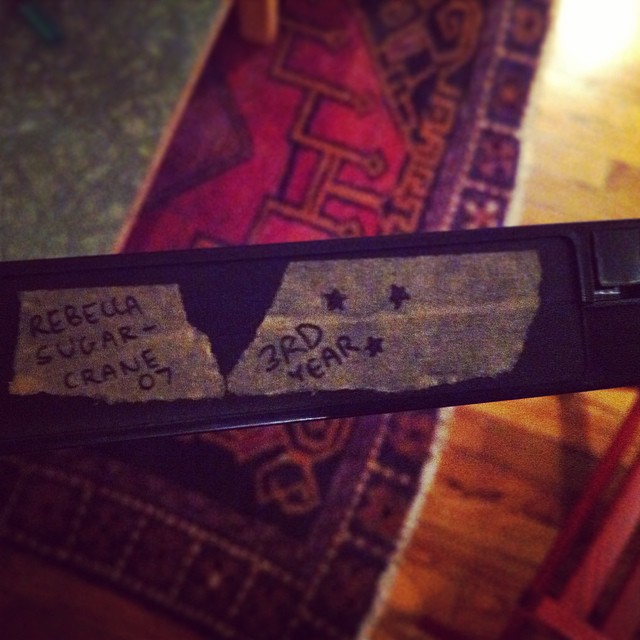 REBECCA
SUGAR-
CRANE
07
3RD
YEAR